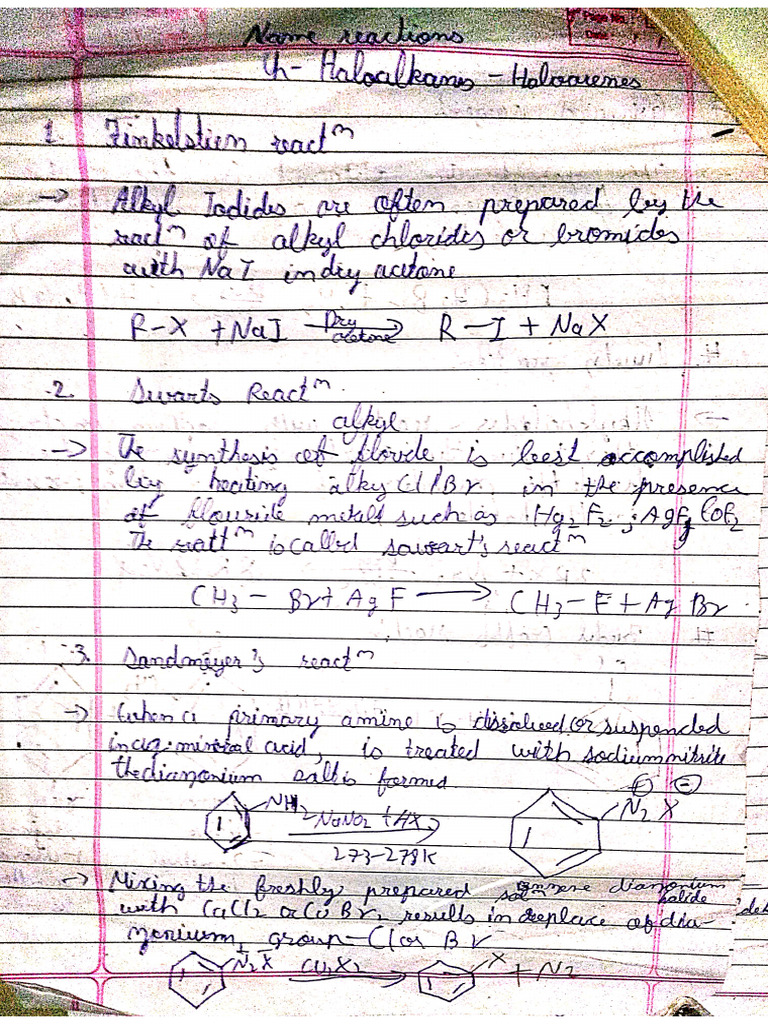 Page No.
Date
Name reactions
Ch- Haloalkanes - Haloarenes
1. Finkelstien react^n
→ Alkyl Iodides are often prepared by the
react^n of alkyl chlorides or bromides
with NaI in dry acetone
R-X + NaI —Dry acetone→ R-I + NaX
2. Swarts React^n
alkyl
→ The synthesis of floride is best accomplished
by heating alky Cl/Br in the presence
of flouride metals such as Hg2F2; AgF, CoF2
The reatt^n is called sawart's react^n
CH3-Br + AgF → CH3-F + AgBr
3. Sandmeyer's react^n
→ When a primary amine is dissolved or suspended
in aq. mineral acid, is treated with sodium nitrite
the diazonium salt is formed
NH2 NaNO2 + HX 273-278K N2 X ⊕ ⊖
→ Mixing the freshly prepared sol^n diazonium
with CuCl2 or Cu Br2 results in replace of dia-
zonium group -Cl or Br
N2X Cu2X2 → X + N2